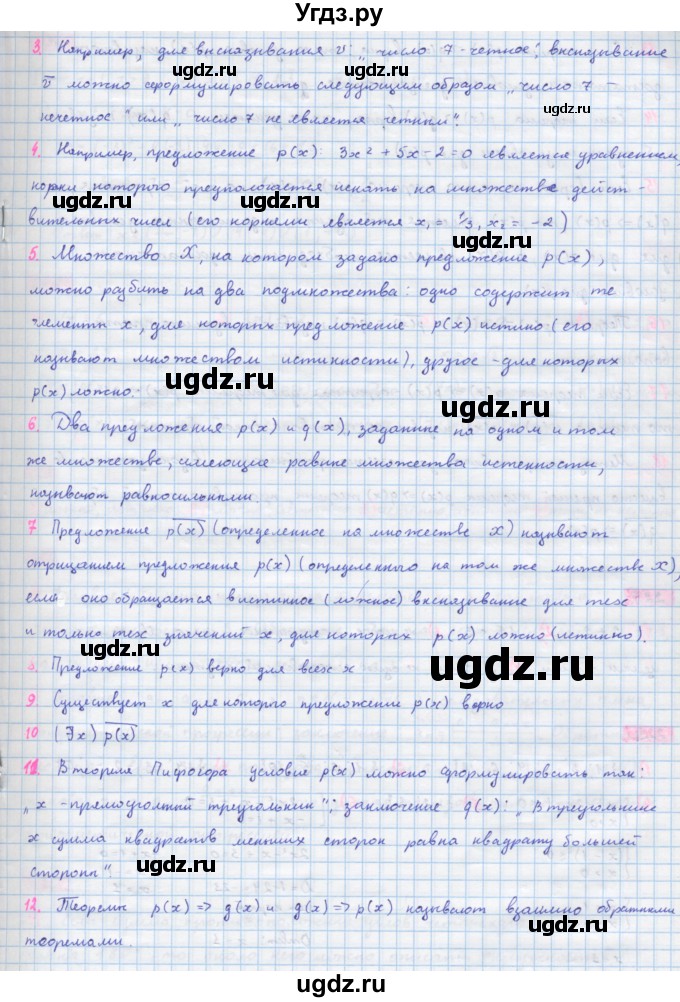 Угдз.ру
3. Например, для высказывания v „ число 7-четное", высказывание
v̅ можно сформулировать следующим образом „число 7 –
нечетное" или „ число 7 не является четным".
4. Например, предложение p(x): 3x² + 5x - 2 = 0 является уравнением,
корни которого предполагается искать на множестве дейст -
вительных чисел (его корнями является x₁ = 1/3, x₂ = -2)
5. Множество X, на котором задано предложение p(x),
можно разбить на два подмножества: одно содержит те
элементы x, для которых предложение p(x) истино (его
называют множеством истинности), другое - для которых
p(x) ложно.
6. Два предложения p(x) и q(x), заданные на одном и том
же множестве, имеющие равные множества истенности,
называют равносильными.
7 Предложение p(x)̅ (определенное на множестве X) называют
отрицанием предложения p(x) (определенного на том же множестве X),
если оно обращается в истинное (ложное) высказывание для тех
и только тех значений x, для которых p(x) ложно (истинно).
8. Предложение p(x) верно для всех x
9 Существует x для которого предложение p(x) верно
10 (∃x) p(x)̅
11. В теореме Пифагора условие p(x) можно сформулировать так:
„x - прямоуголный треугольник"; заключение q(x): „В треугольнике
x сумма квадратов меньших сторон равна квадрату большей
стороны".
12. Теоремы p(x) => q(x) и q(x) => p(x) называют взаимно обратными
теоремами.
ugdz.ru ugdz.ru
ugdz.ru ugdz.ru
ugdz.ru ugdz.ru
ugdz.ru ugdz.ru
ugdz.ru ugdz.ru
ugdz.ru ugdz.ru
ugdz.ru ugdz.ru
ugdz.ru ugdz.ru
ugdz.ru ugdz.ru
ugdz.ru ugdz.ru
ugdz.ru